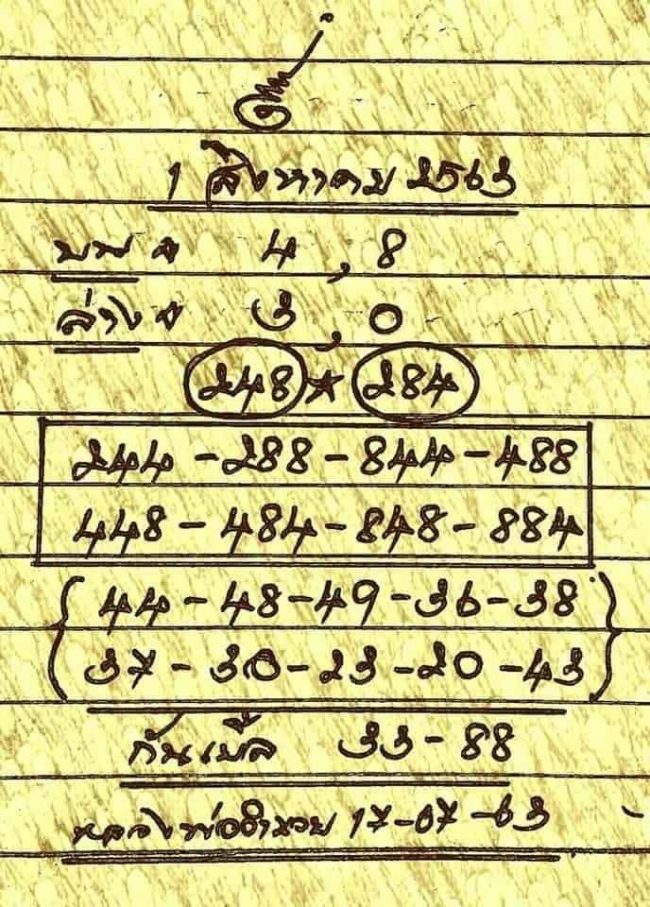 1 สิงหาคม 2563
บน → 4, 8
ล่าง → 3, 0
248 ★ 284
244 - 288 - 844 - 488
448 - 484 - 848 - 884
{ 44 - 48 - 49 - 36 - 38
37 - 30 - 23 - 20 - 43 }
กันเบิ้ล 33 - 88
หลวงพ่ออำนวย 17-07-63